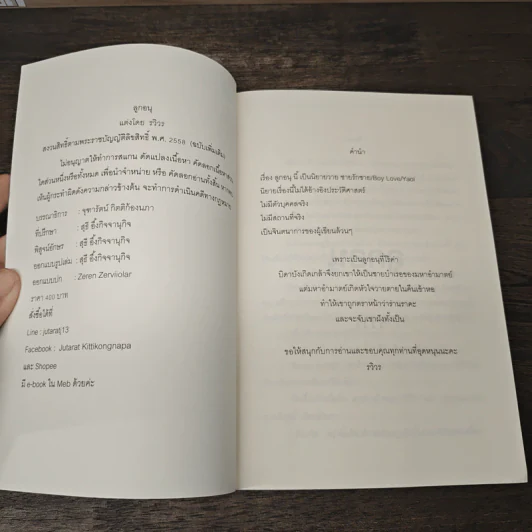 ลูกอนุ
แต่งโดย รวิวร
สงวนสิทธิ์ตามพระราชบัญญัติลิขสิทธิ์ พ.ศ. 2558 (ฉบับเพิ่มเติม)
ไม่อนุญาตให้ทำการสแกน ดัดแปลงเนื้อหา คัดลอกเนื้อหาส่วน
ใดส่วนหนึ่งหรือทั้งหมด เพื่อนำจำหน่าย หรือ คัดลอกอ่านทั้งสิ้น
เห็นผู้กระทำผิดดังความกล่าวข้างต้น จะทำการดำเนินคดีทางกฎหมาย
บรรณาธิการ : จุฑารัตน์ กิตติก้องนภา
ที่ปรึกษา : สุธี อึ้งกิจจานุกิจ
พิสูจน์อักษร : สุธี อึ้งกิจจานุกิจ
ออกแบบรูปเล่ม : สุธี อึ้งกิจจานุกิจ
ออกแบบปก : Zeren Zerviolar
ราคา 400 บาท
สั่งซื้อได้ที่
Line : jutaratj13
Facebook : Jutarat Kittikongnapa
และ Shopee
มี e-book ใน Meb ด้วยค่ะ
คำนำ
เรื่อง ลูกอนุ นี้ เป็นนิยายวาย ชายรักชาย/Boy Love/Yaoi
นิยายเรื่องนี้ไม่ได้อ้างอิงประวัติศาสตร์
ไม่มีตัวบุคคลจริง
ไม่มีสถานที่จริง
เป็นจินตนาการของผู้เขียนล้วนๆ
เพราะเป็นลูกอนุที่ไร้ค่า
บิดาบังเกิดเกล้าจึงยกเขาให้เป็นชายบำเรอของมหาอำมาตย์
แต่มหาอำมาตย์เกิดหัวใจวายตายในคืนเข้าหอ
ทำให้เขาถูกตราหน้าว่าร่านราคะ
และจะจับเขาฝังทั้งเป็น
ขอให้สนุกกับการอ่านและขอบคุณทุกท่านที่อุดหนุนนะคะ
รวิวร